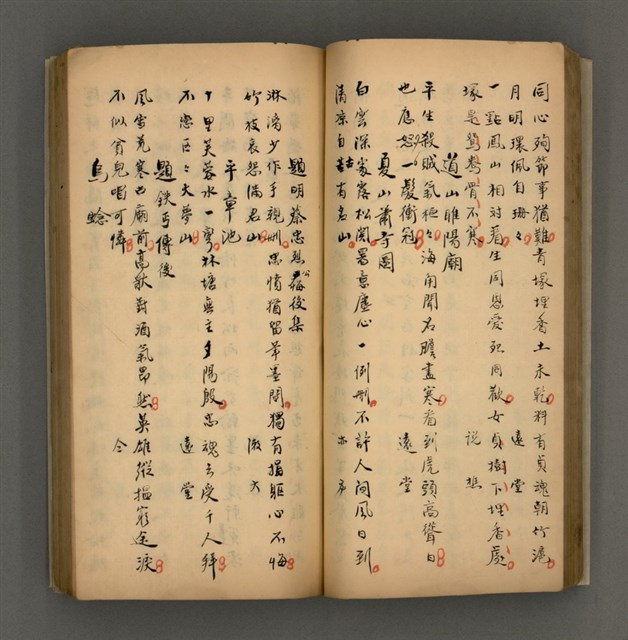 同心殉節事猶難青塚埋香土未乾料有貞魂朝竹滬
月明環佩自珊々　遠堂
一點鳳山相對看生同恩愛死同歡女貞樹下埋香處
塚是鴛鴦骨不寒　說樵
道山睢陽廟
平生殺賊氣桓々海角聞名膽盡寒看到虎頭高聳日
也應怒一髮衝冠　遠堂
夏山蕭寺圖
白雲深處落松關署意塵心一例刪不許人間風日到
清凉自古有名山　亦市
題明蔡忠烈公遺後集
淋漓少作手親刪忠憤猶留筆墨間獨有捐軀心不悔
竹枝哀怨滿君山　激六
平章池
十里芙蓉水一灣林塘無主夕陽殷忠魂去受千人拜
不戀區々大夢山　遠堂
題鉄丐傳後
風雪荒寒古廟前高歌對酒氣昂然英雄縱揾窮途淚
不似貧兒唱可憐　仝
烏蛉